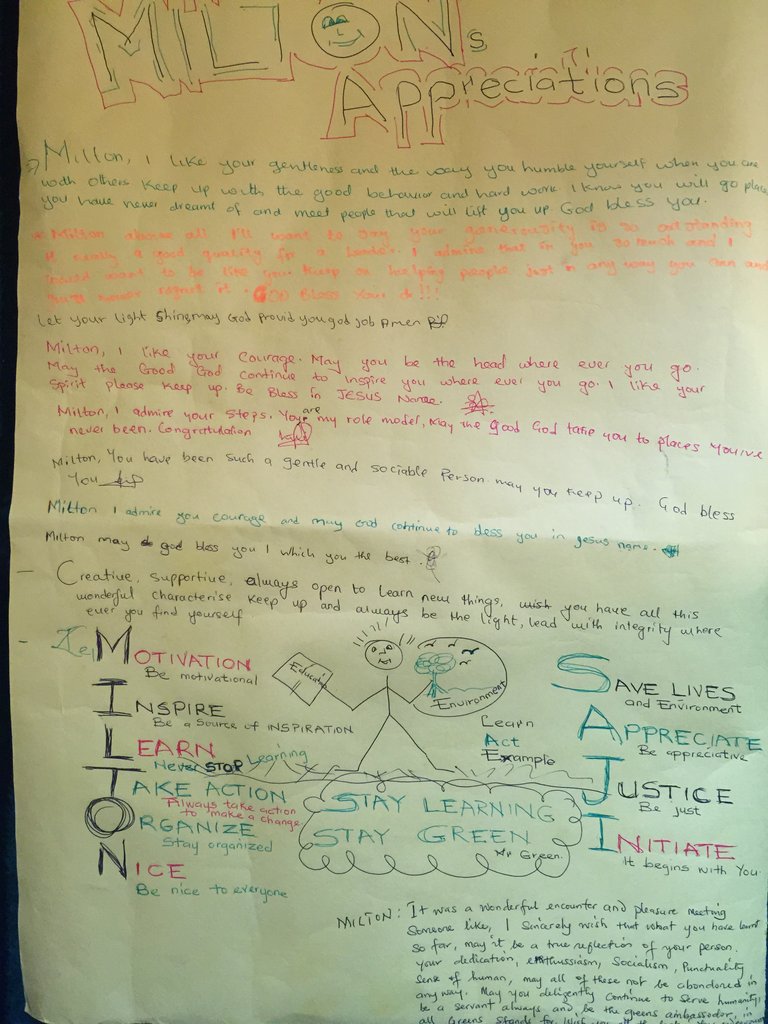 MILTONs
Appreciations
Milton, I like your gentleness and the way you humble yourself when you are
with others Keep up with the good behaviour and hard work I know you will go places
you have never dreamt of and meet people that will lift you up God bless you.
Milton above all I'll want to say your generousity is so outstanding
It really a good quality for a leader. I admire that in you so much and I
would want to be like you. Keep on helping people just in any way you can and
never regret it. GOD Bless Your
Let your light shine, may God provid you god job Amen
Milton, I like your Courage. May you be the head where ever you go.
May the Good God continue to inspire you where ever you go. I like your
Spirit please keep up. Be Bless in JESUS Name.
Milton, I admire your steps. You are my role model, May the good God take you to places You've
never been. Congratulation
Milton, You have been such a gentle and sociable Person. may you keep up. God bless
You
Milton I admire you courage and may God continue to bless you in jesus name.
Milton may god bless you I which you the best.
- Creative, Supportive, always open to learn new things, you have all this
wonderful characterise keep up and always be the light, lead with integrity where
ever you find yourself
MOTIVATION
Be motivational
INSPIRE
Be a Source of INSPIRATION
LEARN
Never STOP Learning
TAKE ACTION
Always take action
to make a change
ORGANIZE
Stay organized
NICE
Be nice to everyone
Education
Environment
Learn
Act
Example
STAY LEARNING
STAY GREEN
Mr Green.
SAVE LIVES
and Environment
APPRECIATE
Be appreciative
JUSTICE
Be just
INITIATE
It begins with You
MILTON: It was a wonderful encounter and pleasure meeting
Someone like, I Sincerely wish that what you have learnt
so far, may it be a true reflection of your person.
your dedication, enthussiasm, Socialism, Punctuality
Sense of human, may all of these not be abondoned in
anyway. May you deligently Continue to Serve humanity,
be a servant always and be the greens ambassador, in
all Greens Stands for.